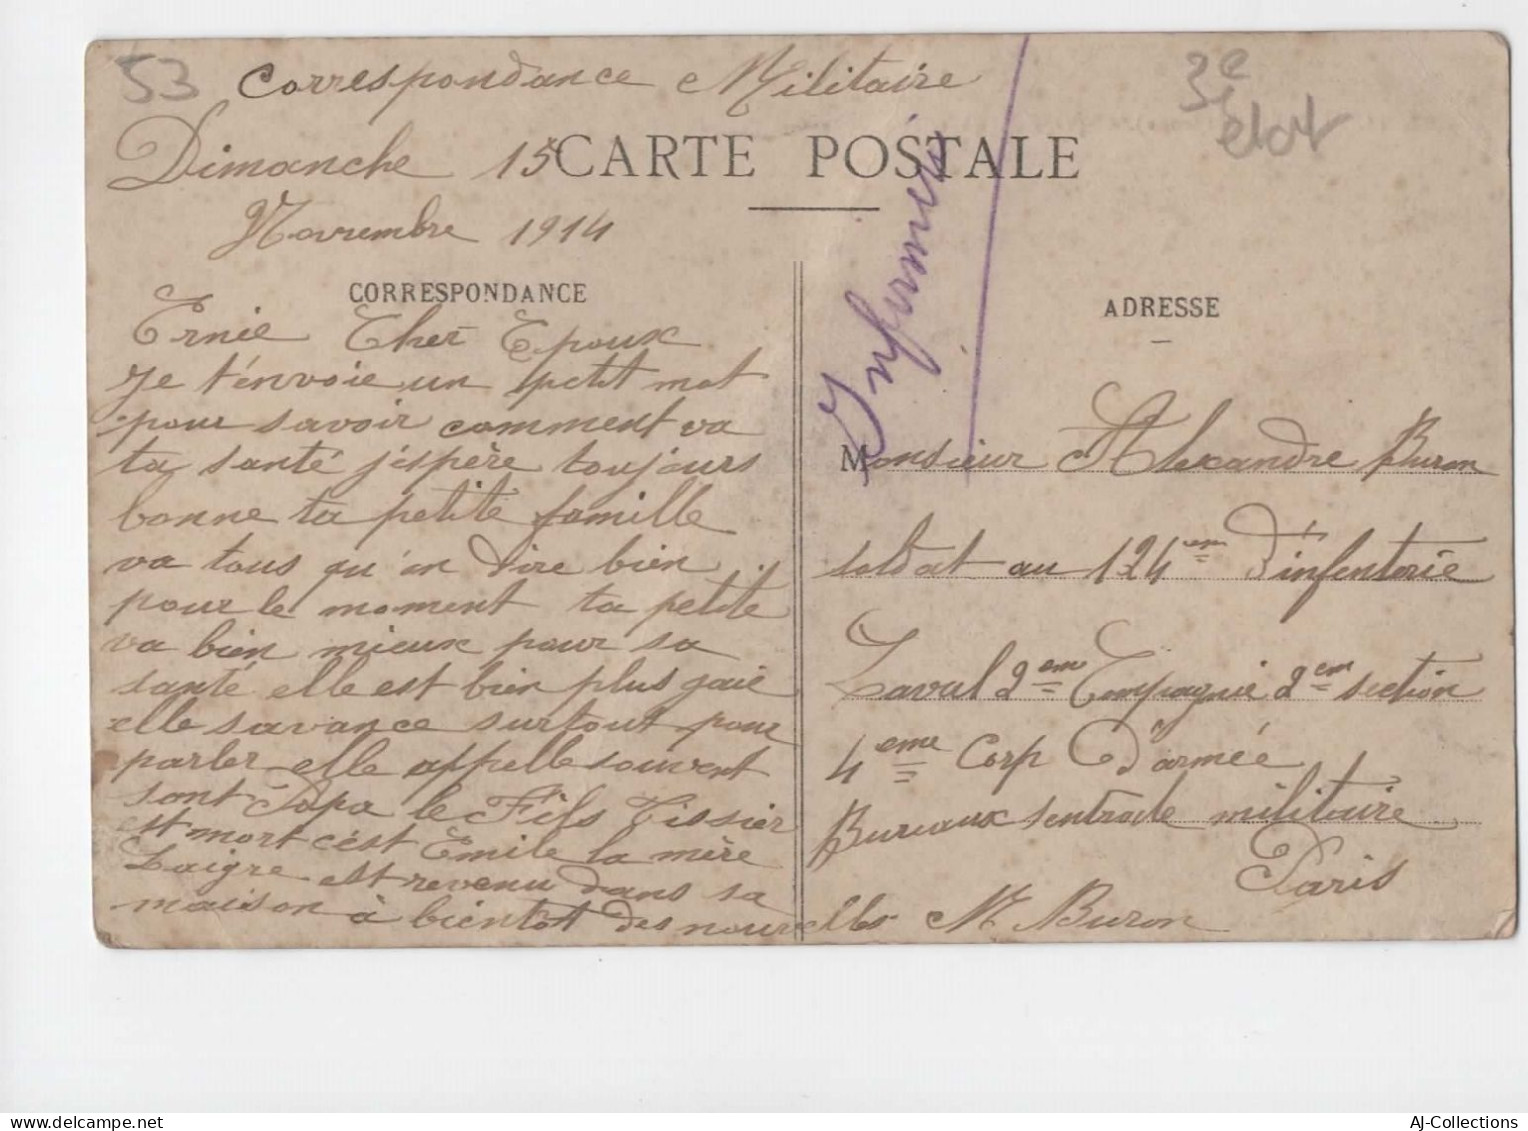 53 Correspondance Militaire
3e
Dimanche 15 CARTE POSTALE
Novembre 1914
Infirmier
CORRESPONDANCE
Ernie Cher Epoux
Je t'envoie un petit mot
pour savoir comment va
ta santé j'espère toujours
bonne ta petite famille
va tous qu'on dire bien
pour le moment ta petite
va bien mieux pour sa
santé elle est bien plus gaie
elle savance surtout pour
parler elle appelle souvent
sont Papa le Fils Tissier
est mort c'est Emile la mère
Laigre est revenu dans sa
maison à bientot des nouvelles M Buron
ADRESSE
Monsieur Alexandre Buron
soldat au 124em d'infenterie
Laval 2em Compagnie 2em section
4eme Corp D'armée
Bureaux sentrale militaire
Paris
AJ-Collections